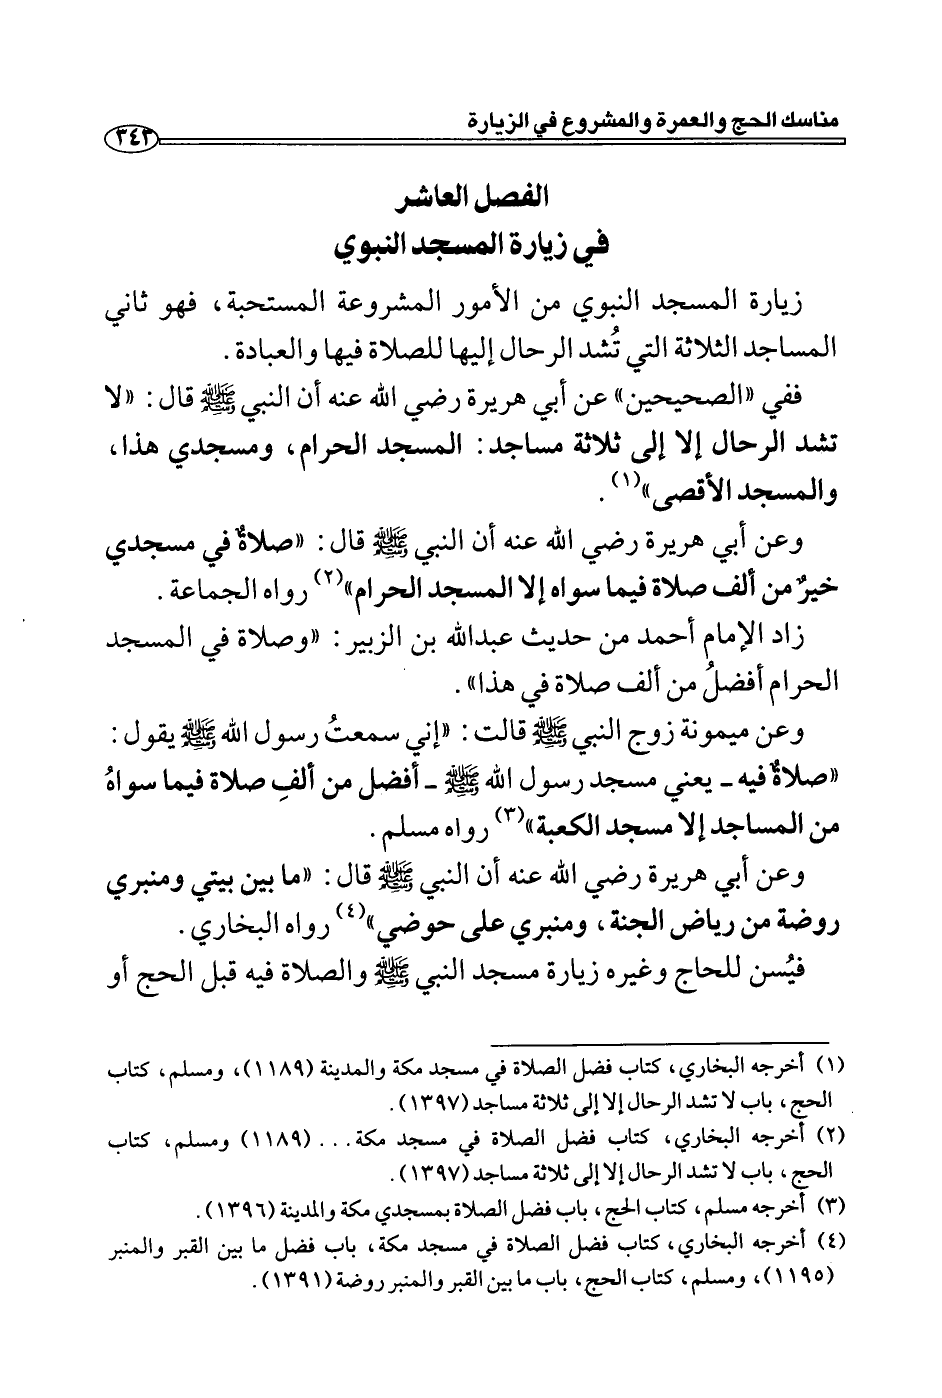 مناسك الحج والعمرة والمشروع في الزيارة
٣٤٣
الفصل العاشر
في زيارة المسجد النبوي
زيارة المسجد النبوي من الأمور المشروعة المستحبة، فهو ثاني
المساجد الثلاثة التي تُشد الرحال إليها للصلاة فيها والعبادة.
ففي «الصحيحين» عن أبي هريرة رضي الله عنه أن النبي ﷺ قال: «لا
تشد الرحال إلا إلى ثلاثة مساجد: المسجد الحرام، ومسجدي هذا،
والمسجد الأقصى»(١).
وعن أبي هريرة رضي الله عنه أن النبي ﷺ قال: «صلاةٌ في مسجدي
خيرٌ من ألف صلاة فيما سواه إلا المسجد الحرام»(٢) رواه الجماعة.
زاد الإمام أحمد من حديث عبدالله بن الزبير: «وصلاة في المسجد
الحرام أفضلُ من ألف صلاة في هذا».
وعن ميمونة زوج النبي ﷺ قالت: «إني سمعتُ رسول الله ﷺ يقول:
«صلاةٌ فيه ـ يعني مسجد رسول الله ﷺ ـ أفضل من ألفِ صلاة فيما سواهُ
من المساجد إلا مسجد الكعبة»(٣) رواه مسلم.
وعن أبي هريرة رضي الله عنه أن النبي ﷺ قال: «ما بين بيتي ومنبري
روضة من رياض الجنة، ومنبري على حوضي»(٤) رواه البخاري.
فيُسن للحاج وغيره زيارة مسجد النبي ﷺ والصلاة فيه قبل الحج أو
(١) أخرجه البخاري، كتاب فضل الصلاة في مسجد مكة والمدينة (١١٨٩)، ومسلم، كتاب
الحج، باب لا تشد الرحال إلا إلى ثلاثة مساجد (١٣٩٧).
(٢) أخرجه البخاري، كتاب فضل الصلاة في مسجد مكة... (١١٨٩) ومسلم، كتاب
الحج، باب لا تشد الرحال إلا إلى ثلاثة مساجد (١٣٩٧).
(٣) أخرجه مسلم، كتاب الحج، باب فضل الصلاة بمسجدي مكة والمدينة (١٣٩٦).
(٤) أخرجه البخاري، كتاب فضل الصلاة في مسجد مكة، باب فضل ما بين القبر والمنبر
(١١٩٥)، ومسلم، كتاب الحج، باب ما بين القبر والمنبر روضة (١٣٩١).